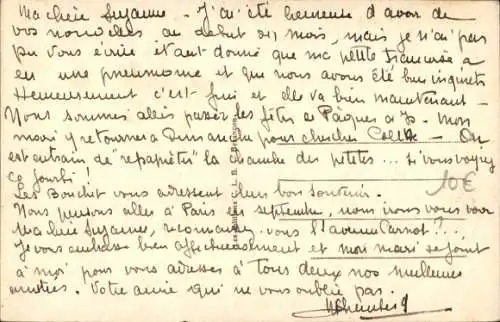 Ma chère Suzanne - J'ai été heureuse d'avoir de
vos nouvelles au début du mois, mais je n'ai pas
pu vous écrire étant donné que ma petite Française a
eu une pneumonie et que nous avons été bien inquiets
Heureusement c'est fini et elle va bien maintenant -
Nous sommes allés passer les fêtes de Pâques à Mon
mari y retournera Dimanche pour chercher On
est en train de "repapéter" la chambre des petites... si vous voyiez
ce fourbi!
Les Bouchet vous adressent leur bon souvenir.
10€
Nous pensons aller à Paris en septembre, nous irons vous voir
Ma chère Suzanne, vous 81 avenue Carnot?...
Je vous embrasse bien affectueusement et mon mari se joint
à moi pour vous adresser à tous deux nos meilleures
amitiés. Votre amie qui ne vous oublie pas.